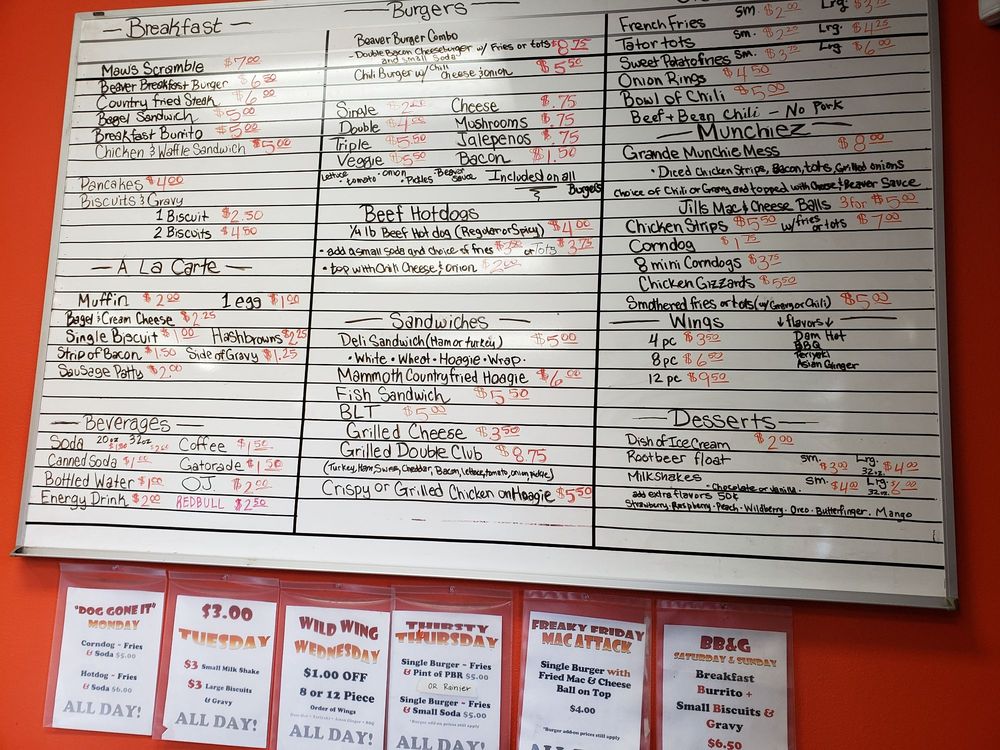 Breakfast
Maws Scramble $7.00
Beaver Breakfast Burger $6.50
Country fried Steak $6.00
Bagel Sandwich $5.00
Breakfast Burrito $5.00
Chicken & Waffle Sandwich $5.00
Pancakes $4.00
Biscuits & Gravy
1 Biscuit $2.50
2 Biscuits $4.50
A La Carte
Muffin $2.00 1 egg $1.00
Bagel & Cream Cheese $2.25
Single Biscuit $1.00 Hashbrowns $2.25
Strip of Bacon $1.50 Side of Gravy $1.25
Sausage Patty $2.00
Beverages
Soda 20oz $1.50 32oz $2.00 Coffee $1.50
Canned Soda $1.00 Gatorade $1.50
Bottled Water $1.00 OJ $2.00
Energy Drink $2.00 REDBULL $2.50
Burgers
Beaver Burger Combo
- Double Bacon Cheeseburger w/ Fries or tots $8.75
and small Soda
Chili Burger w/ Chili Cheese & onion $5.50
Single Cheese $.75
Double $4.00 Mushrooms $.75
Triple $5.50 Jalepenos $.75
Veggie $5.50 Bacon $1.50
Lettuce · tomato · onion · Pickles · Beaver Sauce Included on all Burgers
Beef Hotdogs
1/4 lb Beef Hot dog (Regular or Spicy) $4.00
· add a small soda and choice of fries or Tots $3.75
· top with Chili Cheese & onion $2.00
Sandwiches
Deli Sandwich (Ham or turkey) $5.00
· White · Wheat · Hoagie · Wrap ·
Mammoth Country fried Hoagie $6.00
Fish Sandwich $5.50
BLT $5.00
Grilled Cheese $3.50
Grilled Double Club $8.75
(Turkey, Ham, Swiss, Cheddar, Bacon, lettuce, tomato, onion, pickle)
Crispy or Grilled Chicken on Hoagie $5.50
French Fries sm. $2.00 Lrg.
Tator tots sm. $2.25 Lrg. $4.25
Sweet Potato fries sm. $3.75 Lrg. $6.00
Onion Rings $4.50
Bowl of Chili $5.00
Beef + Bean Chili - No Pork
Munchiez
Grande Munchie Mess $8.00
· Diced Chicken Strips, Bacon, tots, Grilled onions
choice of Chili or Gravy and topped with Cheese & Beaver Sauce
Jills Mac & Cheese Balls 3 for $5.00
Chicken Strips $5.50 w/ fries or tots $7.00
Corndog $1.75
8 mini Corndogs $3.75
Chicken Gizzards $5.50
Smothered fries or tots (w/ Gravy or Chili) $5.00
Wings ↓ flavors ↓
4 pc $3.50 Dam Hot
BBQ
8 pc $6.50 Teriyaki
Asian Ginger
12 pc $9.50
Desserts
Dish of Ice Cream $2.00
Rootbeer float sm. $3.00 Lrg. 32oz. $4.00
Milkshakes · Chocolate or Vanilla · sm. $4.00 Lrg. 32oz.
add extra flavors 50¢
Strawberry · Raspberry · Peach · Wildberry · Oreo · Butterfinger · Mango
"DOG GONE IT"
MONDAY
Corndog - Fries
& Soda $5.00
Hotdog - Fries
& Soda $6.00
ALL DAY!
$3.00
TUESDAY
$3 Small Milk Shake
$3 Large Biscuits
& Gravy
ALL DAY!
WILD WING
WEDNESDAY
$1.00 OFF
8 or 12 Piece
Order of Wings
ALL DAY!
THIRSTY
THURSDAY
Single Burger - Fries
& Pint of PBR $5.00
OR Rainier
Single Burger - Fries
& Small Soda $5.00
*Burger add-on prices still apply
ALL DAY!
FREAKY FRIDAY
MAC ATTACK
Single Burger with
Fried Mac & Cheese
Ball on Top
$4.00
*Burger add-on prices still apply
ALL DAY!
BB&G
SATURDAY & SUNDAY
Breakfast
Burrito +
Small Biscuits &
Gravy
$6.50